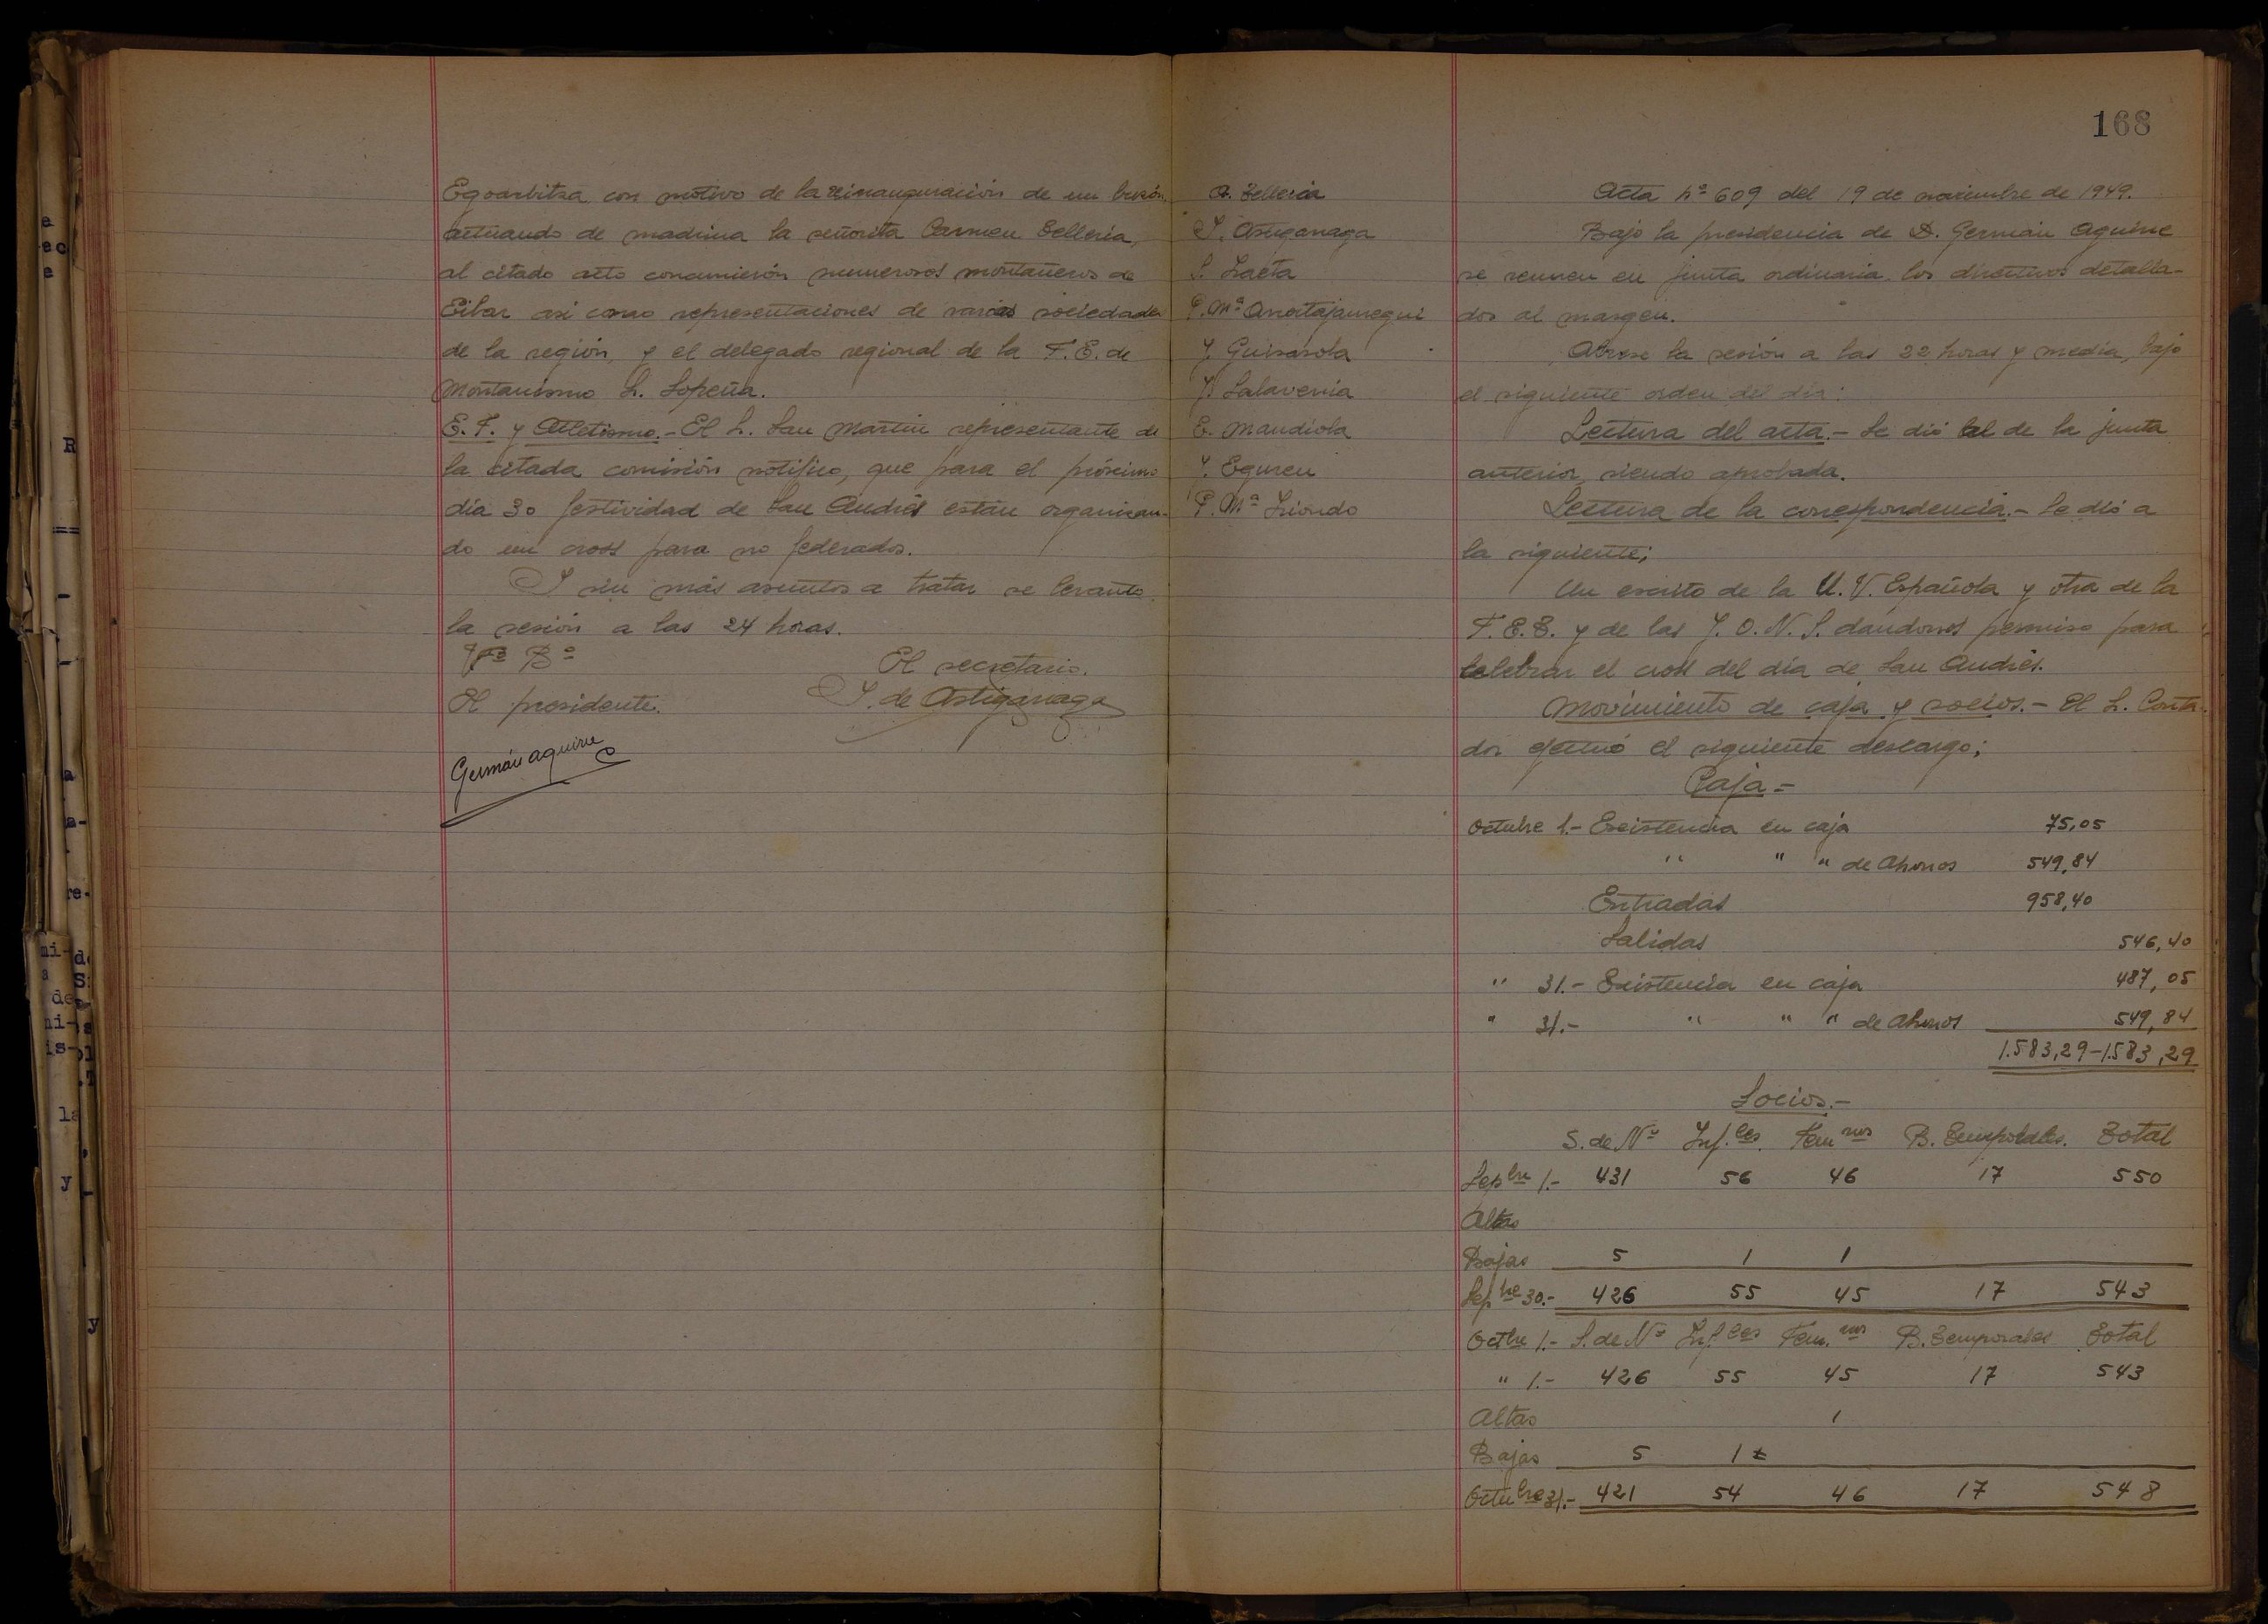 Egoarbitza con motivo de la reinauguración de un buzón,
actuando de madrina la señorita Carmen Telleria,
al citado acto concurrierón numerosos montañeros de
Eibar asi como representaciones de varias sociedades
de la región, y el delegado regional de la F. E. de
Montanismo S. Lopeña.
E. F. y Atletismo.- El S. San Martin representante de
la citada comisión notifico, que para el próximo
día 30 festividad de San Andrés están organizan-
do un cross para no federados.
Y sin más asuntos a tratar se levanto
la sesión a las 24 horas.
Vº Bº
El secretario.
El presidente.
Y. de Astigarraga
Germán Aguirre
168
A. Telleria
Y. Astigarraga
S. Izaeta
P. Mª Arostajauregui
Y. Guisasola
Y. Salaverria
E. Mandiola
Y. Eguren
P. Mª Iriondo
Acta nº 609 del 19 de noviembre de 1949.
Bajo la presidencia de D. Germán Aguirre
se reunen en junta ordinaria los directivos detalla-
dos al margen.
Abrese la sesión a las 22 horas y media, bajo
el siguiente orden del día:
Lectura del acta.- Se dió al de la junta
anterior, siendo aprobada.
Lectura de la correspondencia.- Se dió a
la siguiente;
Un escrito de la U. V. Española y otra de la
F. E. T. y de las J. O. N. S. dandonos permiso para
celebrar el cross del día de San Andrés.
Movimiento de caja y socios.- El S. Conta-
dor efectuó el siguiente descargo;
Caja=
Octubre 1.- Existencia en caja 75,05
" " " de Ahorros 549,84
Entradas 958,40
Salidas 546,40
" 31.- Existencia en caja 487,05
" 31.- " " " de Ahorros 549,84
1.583,29-1.583,29
Socios.-
S. de Nº Inf.les Fem nos B. Temporales. Total
Sepbre 1.- 431 56 46 17 550
Altas
Bajas 5 1 1
Sepbre 30.- 426 55 45 17 543
Octbre 1.- S. de Nº Inf.les Fem. nos B. Temporales Total
" 1.- 426 55 45 17 543
Altas 1
Bajas 5 1
Octubre 31.- 421 54 46 17 548